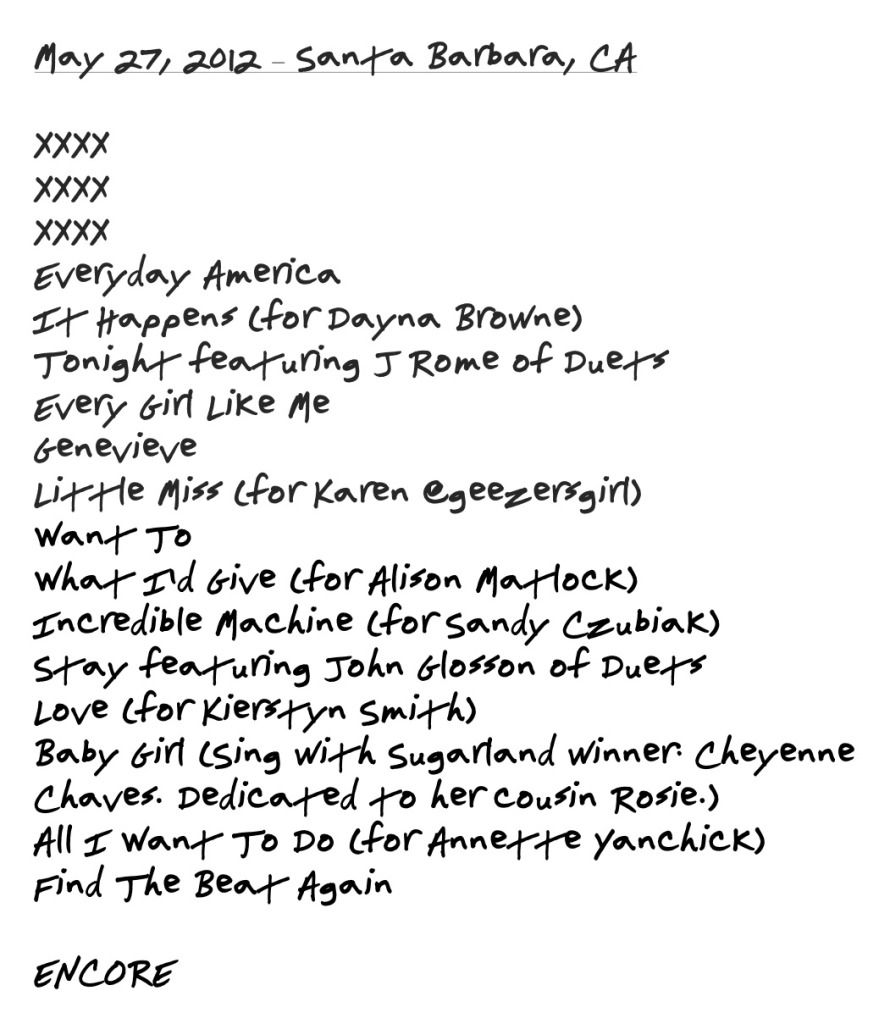 May 27, 2012 – Santa Barbara, CA
XXXX
XXXX
XXXX
Everyday America
It Happens (for Dayna Browne)
Tonight featuring J Rome of Duets
Every Girl Like Me
Genevieve
Little Miss (for Karen @geezersgirl)
Want To
What I'd Give (for Alison Matlock)
Incredible Machine (for Sandy Czubiak)
Stay featuring John Glosson of Duets
Love (for Kierstyn Smith)
Baby Girl (Sing With Sugarland Winner: Cheyenne
Chaves. Dedicated to her cousin Rosie.)
All I Want To Do (for Annette Yanchick)
Find The Beat Again
ENCORE